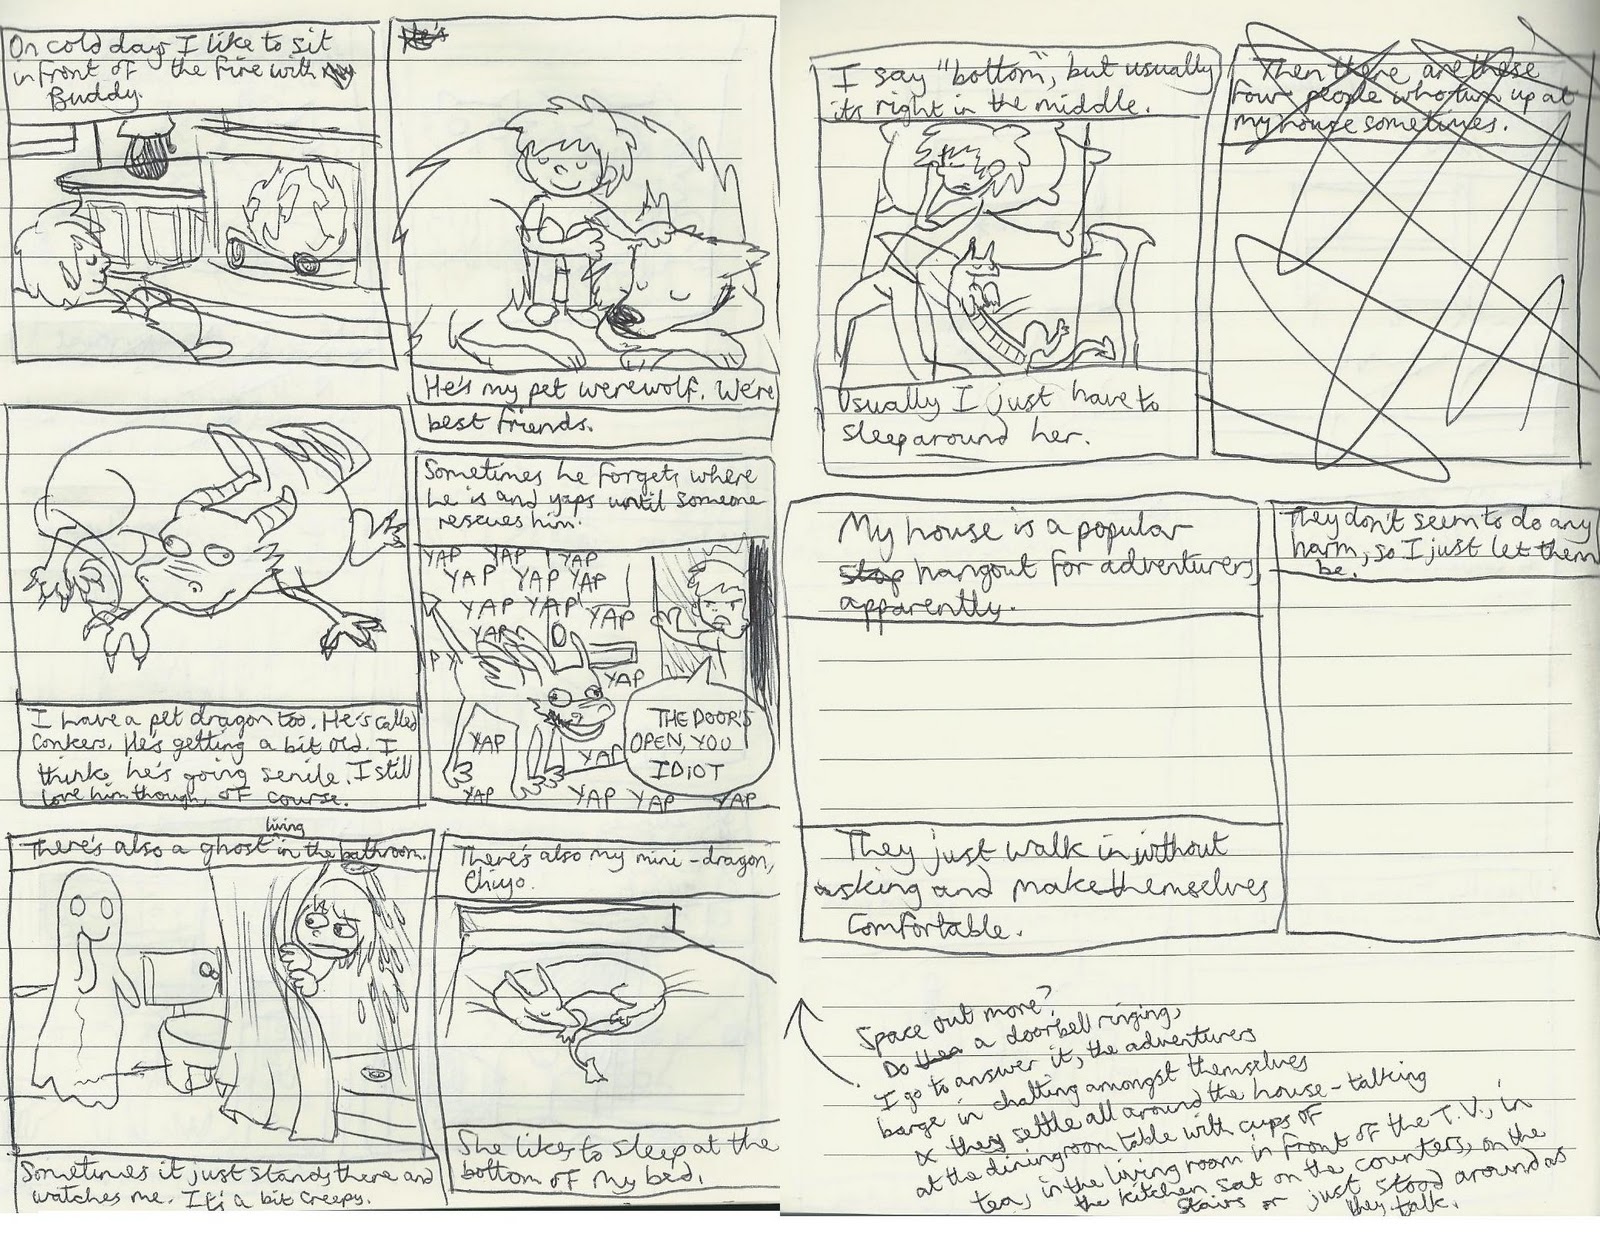 On cold days I like to sit
in front of the fire with my
Buddy.
He's
He's my pet werewolf. We're
best friends.
I have a pet dragon too. He's called
Conkers. He's getting a bit old. I
think he's going senile. I still
love him though, of course.
Sometimes he forgets where
he is and yaps until someone
rescues him.
YAP YAP YAP
YAP YAP YAP
YAP YAP YAP
YAP
YAP
YAP
YAP
THE DOOR'S
OPEN, YOU
IDIOT
YAP YAP YAP YAP
There's also a ghost living in the bathroom.
Sometimes it just stands there and
watches me. It's a bit creepy.
There's also my mini-dragon,
Chiyo.
She likes to sleep at the
bottom of my bed.
I say "bottom", but usually
its right in the middle.
Usually I just have to
sleep around her.
Then there are these
four people who turn up at
my house sometimes.
My house is a popular
stop hangout for adventurers
apparently.
They just walk in without
asking and make themselves
comfortable.
They don't seem to do any
harm, so I just let them
be.
Space out more?
Do a doorbell ringing,
I go to answer it, the adventurers
barge in chatting amongst themselves
& they settle all around the house - talking
at the dining room table with cups of
tea, in the living room in front of the T.V., in
the kitchen sat on the counters, on the
stairs or just stood around as
they talk.